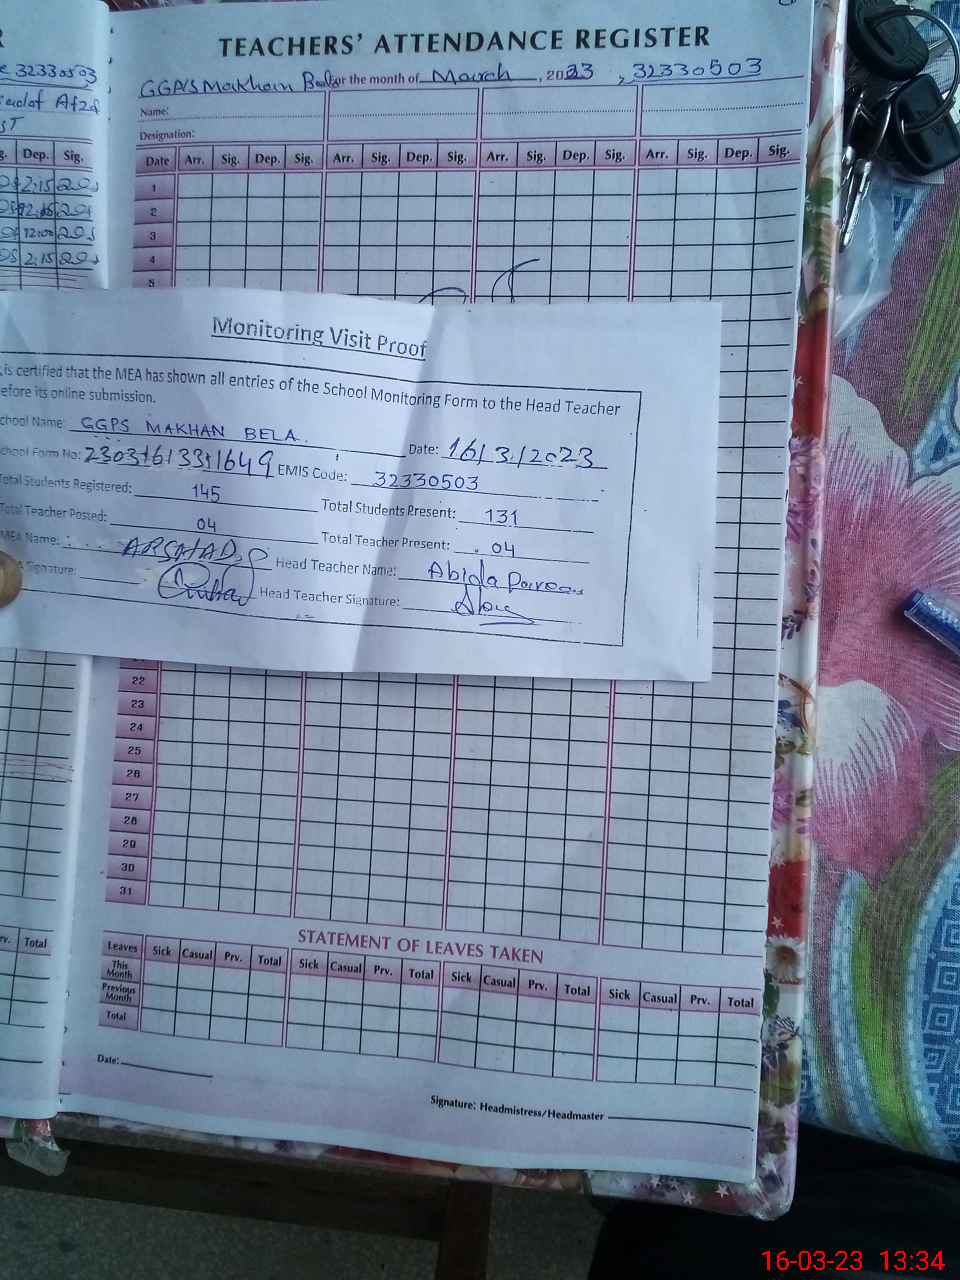 R
32330503
ST
g. Dep. Sig.
2:15
12:15
12:00
2:15
TEACHERS' ATTENDANCE REGISTER
GGPS Makhan Bela for the month of March, 2023, 32330503
Name:
Designation:
Date Arr. Sig. Dep. Sig. Arr. Sig. Dep. Sig. Arr. Sig. Dep. Sig. Arr. Sig. Dep. Sig.
1
2
3
4
5
Monitoring Visit Proof
is certified that the MEA has shown all entries of the School Monitoring Form to the Head Teacher
efore its online submission.
chool Name: GGPS MAKHAN BELA. Date: 16/3/2023
chool Form No: EMIS Code: 32330503
Total Students Registered: 145 Total Students Present: 131
Total Teacher Posted: 04 Total Teacher Present: 04
MEA Name: ARSHAD Head Teacher Name: Abida Parveen
A Signature: Head Teacher Signature:
22
23
24
25
26
27
28
29
30
31
rv. Total
STATEMENT OF LEAVES TAKEN
Leaves Sick Casual Prv. Total Sick Casual Prv. Total Sick Casual Prv. Total Sick Casual Prv. Total
This Month
Previous Month
Total
Date:
Signature: Headmistress/Headmaster
16-03-23 13:34